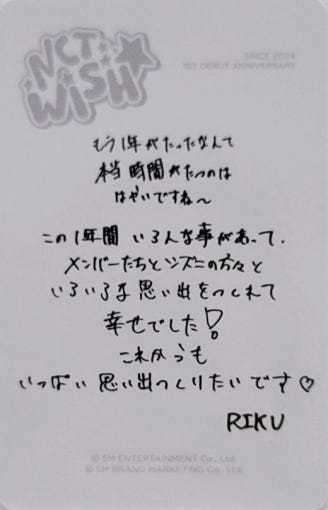 NCT
WISH
SINCE 2024
1ST DEBUT ANNIVERSARY
もう1年がたったなんて
本当 時間がたつのは
はやいですね〜
この1年間 いろんな事があって、
メンバーたちとシズニの方々と
いろいろな思い出をつくれて
幸せでした!
これからも
いっぱい 思い出つくりたいです♡
RIKU
© SM ENTERTAINMENT Co., Ltd.
© SM BRAND MARKETING Co., Ltd.